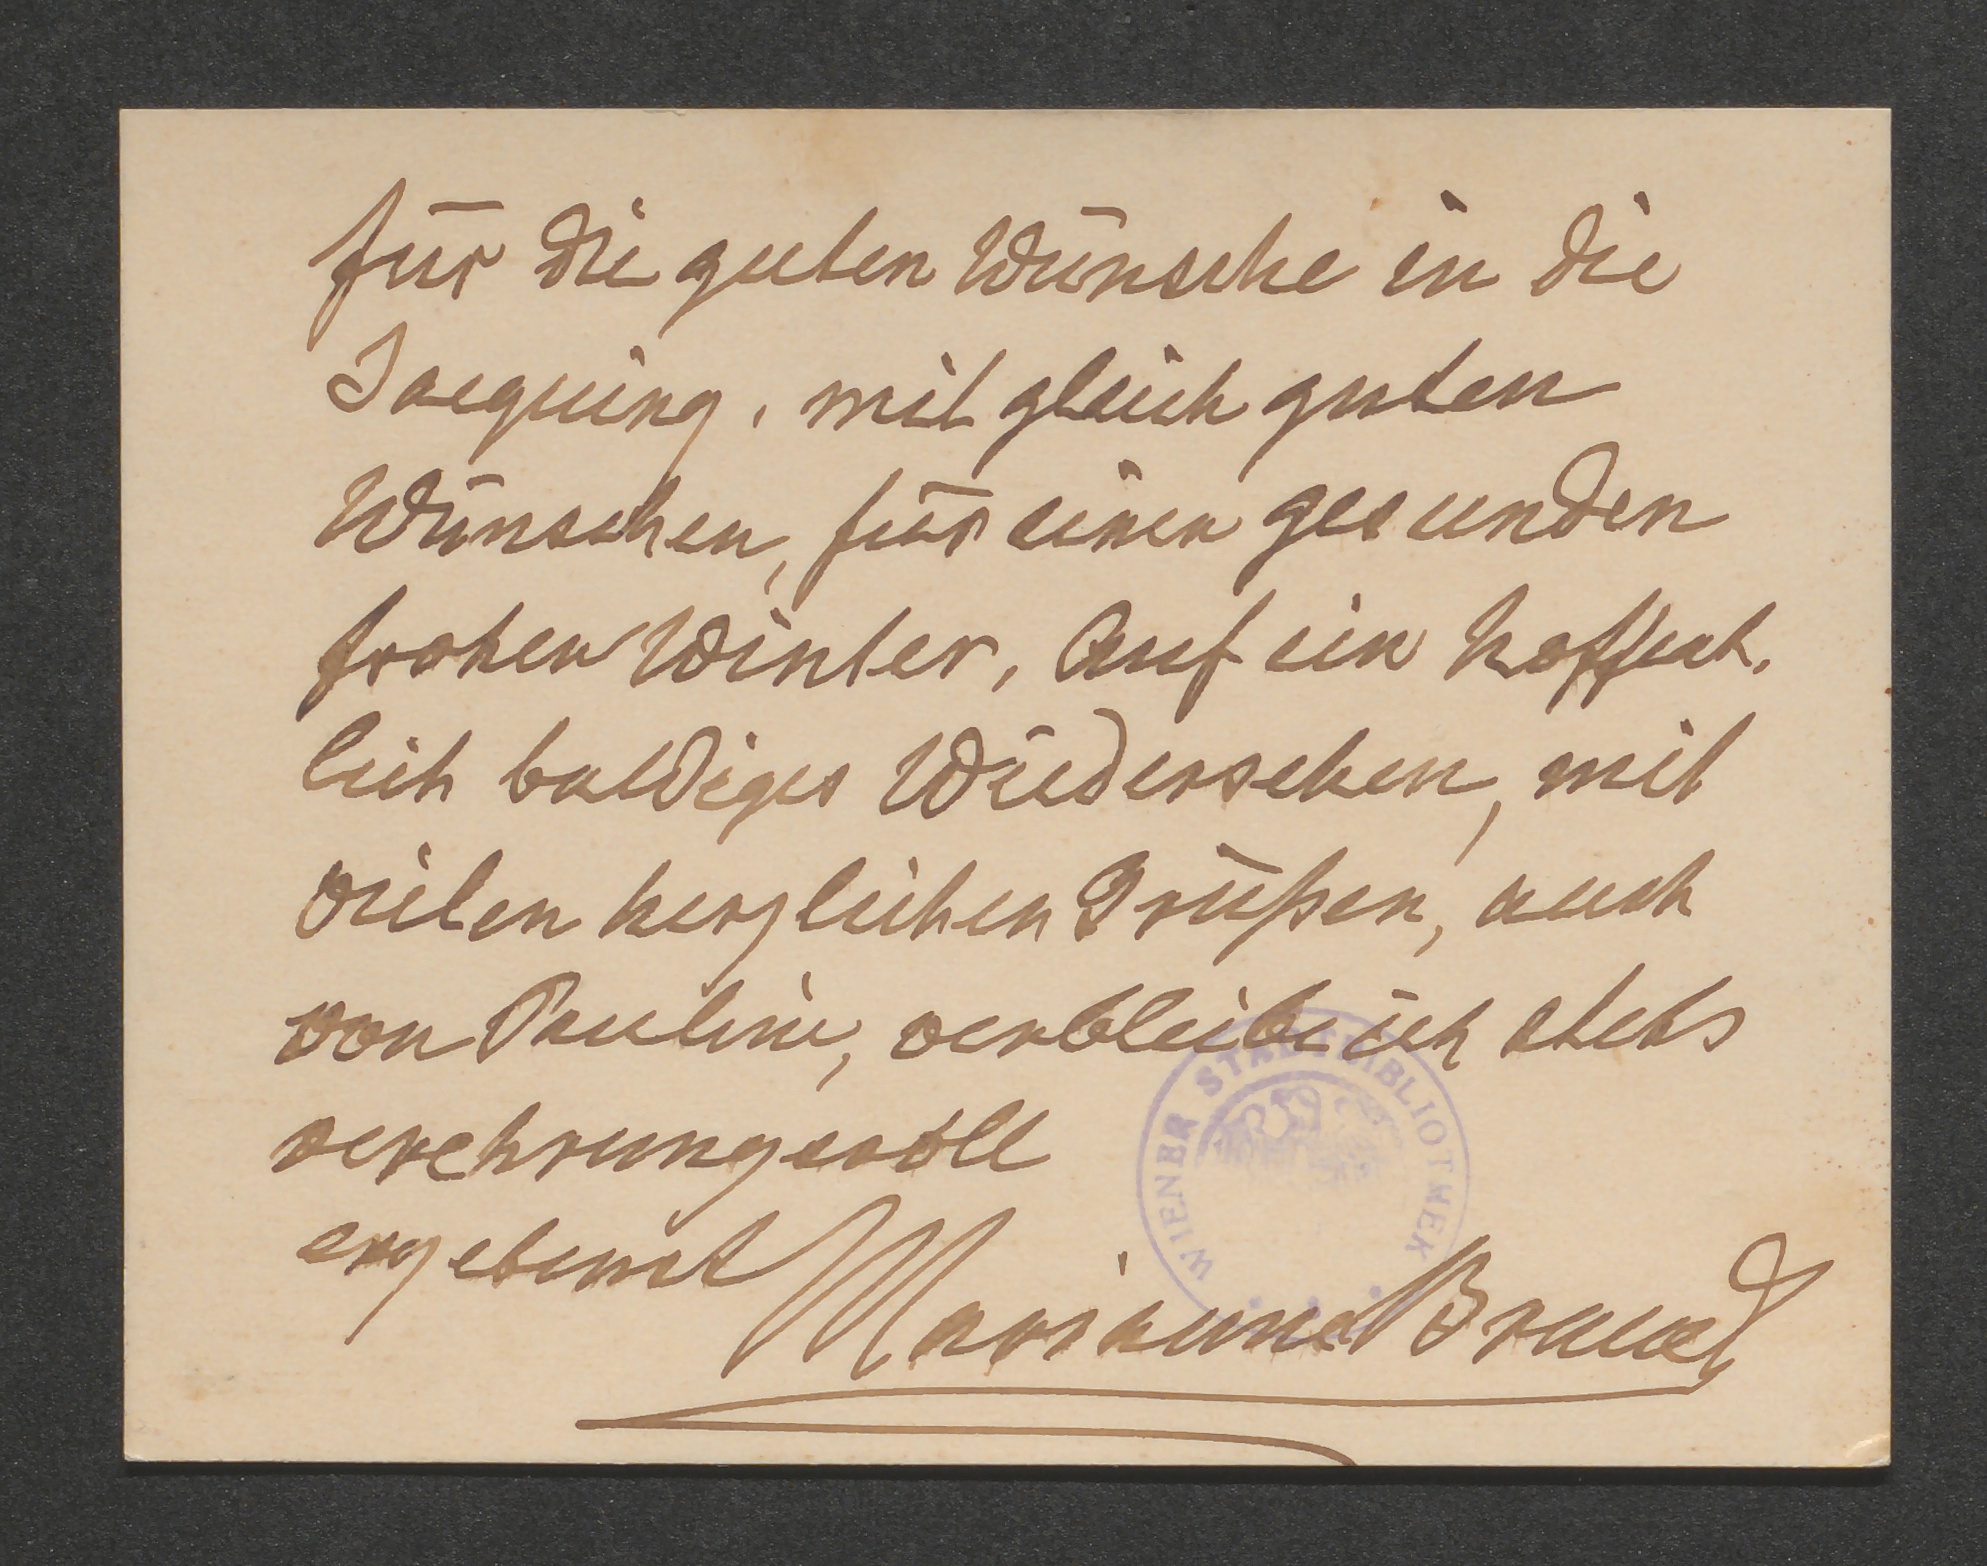 für die guten Wünsche in die
Jacquing. mit gleich guten
Wünschen, für einen gesunden
frohen Winter, Auf ein hoffent-
lich baldiges Wiedersehen, mit
vielen herzlichen Grüßen, auch
von Pauline, verbleibe ich stets
verehrungsvoll
ergebenst Marianne
WIENER STADTBIBLIOTHEK